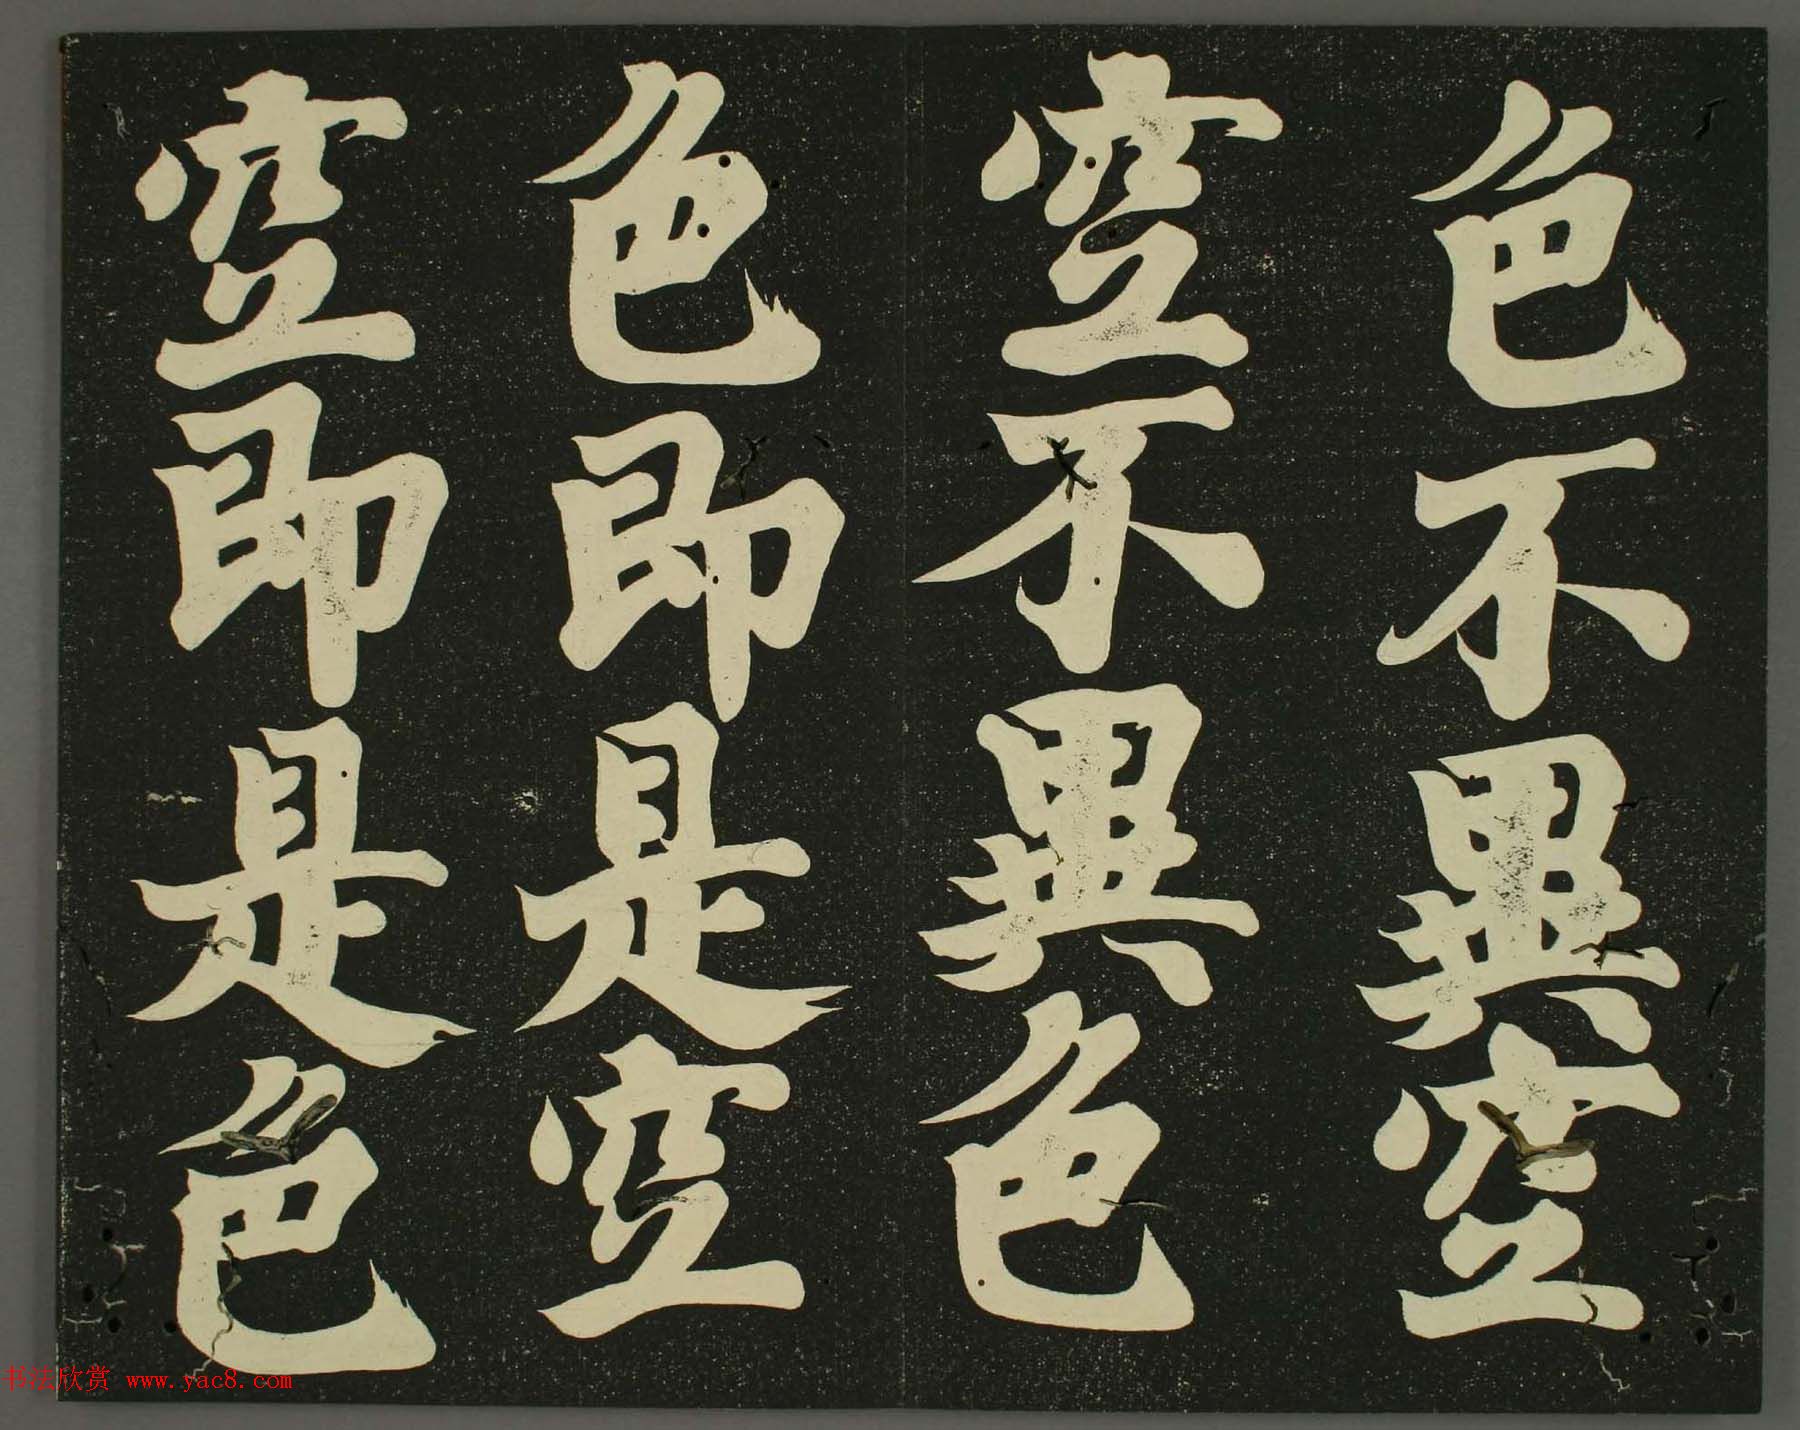 色不異空
空不異色
色即是空
空即是色
书法欣赏 www.yac8.com